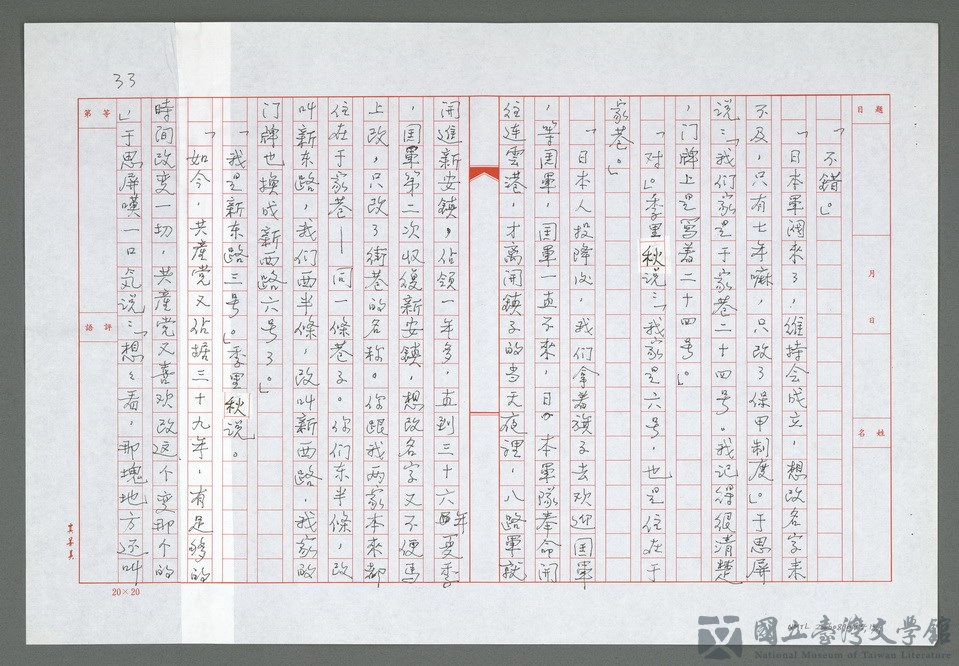 33
題目
月
日
姓名
等第
評語
「不錯。」
「日本軍閥來了！維持会成立，想改名字来
不及，只有七年嘛，只改了保甲制度。」于思屏
说：「我们家是于家巷二十四号。我记得很清楚
，门牌上是寫着二十四号。」
「对。」季里秋说：「我家是六号，也是住在于
家巷。」
「日本人投降後，我们拿着旗子去欢迎国軍
，等国軍，国軍一直不来，日本軍隊奉命開
往連雲港，才离開鎮子的当天夜裡，八路軍就
開進新安鎮，佔領一年多，直到三十六年夏季
，国軍第二次收復新安鎮，想改名字又不便馬
上改，只改了街巷的名称。你跟我两家本來都
住在于家巷——同一條巷子。你们东半條，改
叫新东路，我们西半條，改叫新西路，我家的
门牌也换成新西路六号了。」
「我是新东路三号。」季里秋说。
「如今，共産党又佔据三十九年，有足够的
時间改变一切，共産党又喜欢改这个变那个的
」于思屏嘆一口气说：「想々看，那塊地方还叫
20×20
國立臺灣文學館
National Museum of Taiwan Literature